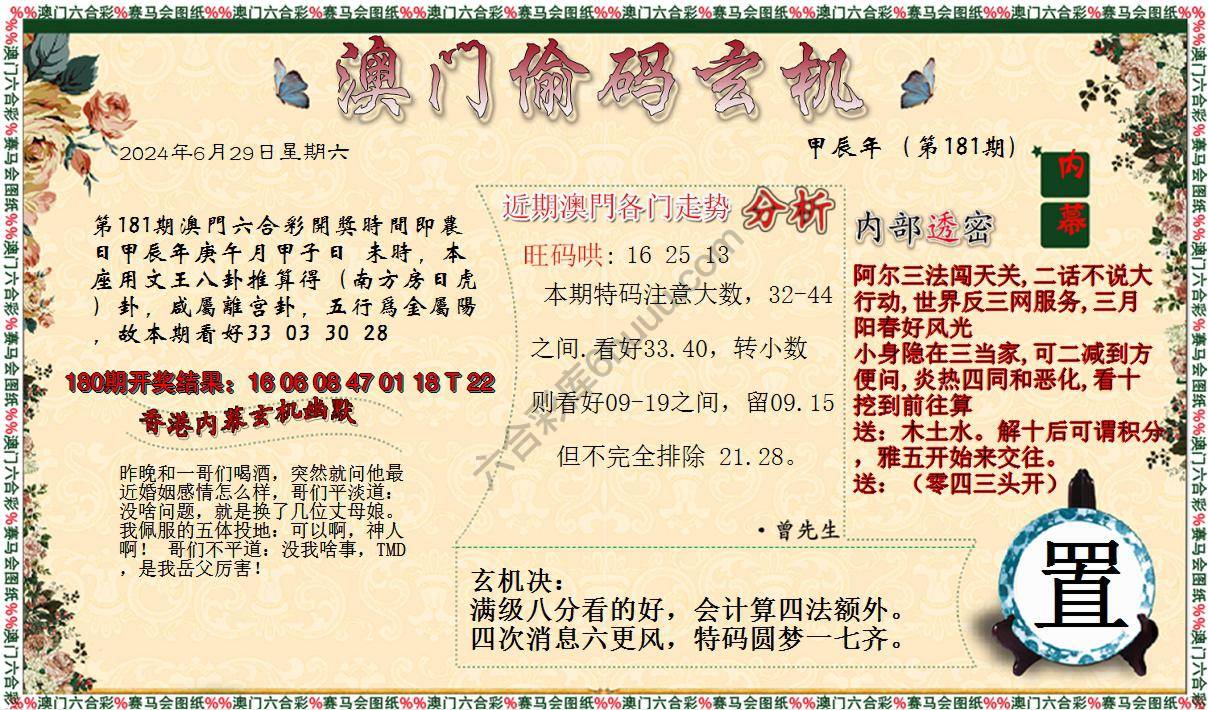 %%澳门六合彩%赛马会图纸%%澳门六合彩%赛马会图纸%%澳门六合彩%赛马会图纸%%澳门六合彩%赛马会图纸%%澳门六合彩%赛马会图纸%%澳门六合彩%赛马会图纸%
澳门偷码玄机
2024年6月29日星期六
甲辰年（第181期）
内幕
第181期澳門六合彩開獎時間即農
日甲辰年庚午月甲子日 未時，本
座用文王八卦推算得（南方房日虎
）卦，咸屬離宮卦，五行爲金屬陽
，故本期看好33 03 30 28
180期开奖结果：16 06 08 47 01 18 T 22
香港内幕玄机幽默
昨晚和一哥们喝酒，突然就问他最
近婚姻感情怎么样，哥们平淡道：
没啥问题，就是换了几位丈母娘。
我佩服的五体投地：可以啊，神人
啊！ 哥们不平道：没我啥事，TMD
，是我岳父厉害！
近期澳門各门走势 分析
旺码哄：16 25 13
本期特码注意大数，32-44
之间.看好33.40，转小数
则看好09-19之间，留09.15
但不完全排除 21.28。
·曾先生
内部透密
阿尔三法闯天关,二话不说大
行动,世界反三网服务,三月
阳春好风光
小身隐在三当家,可二减到方
便问,炎热四同和恶化,看十
挖到前往算
送：木土水。解十后可谓积分
，雅五开始来交往。
送：（零四三头开）
玄机决：
满级八分看的好，会计算四法额外。
四次消息六更风，特码圆梦一七齐。
置
%%澳门六合彩%赛马会图纸%%澳门六合彩%赛马会图纸%%澳门六合彩%赛马会图纸%%澳门六合彩%赛马会图纸%%澳门六合彩%赛马会图纸%%澳门六合彩%赛马会图纸%